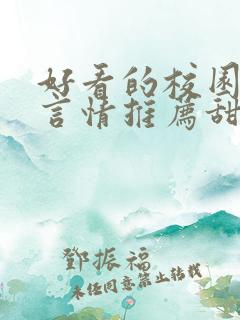 好看的校园
言情推荐甜
鄧振福
未经同意禁止转载